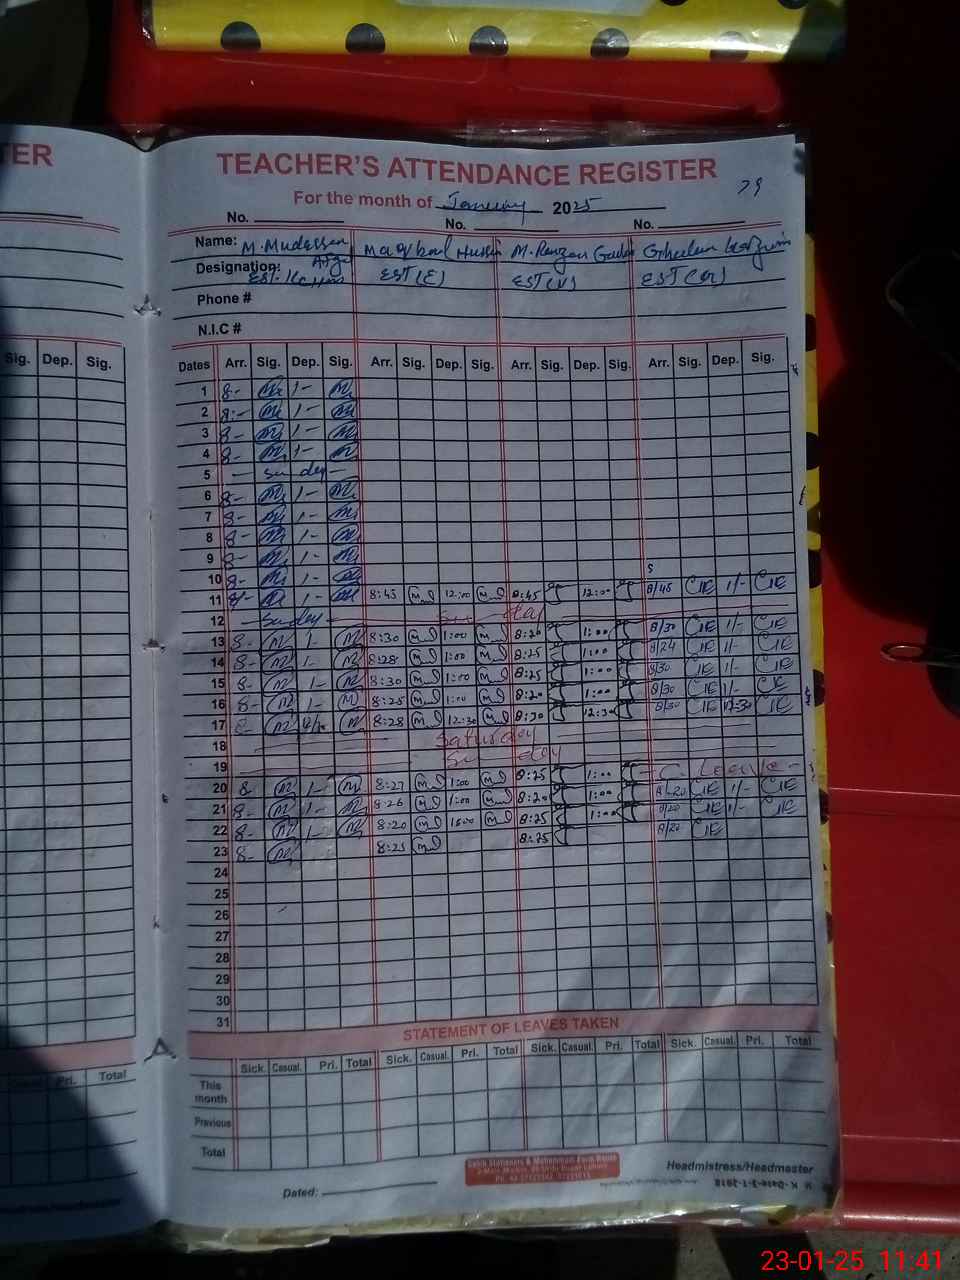 TER
TEACHER'S ATTENDANCE REGISTER
79
For the month of January 2025
No. No. No.
Name: M. Mudassar Maqbool Hussain M. Ramzan Ghulam
Designation: EST (E) EST (V) EST
Phone #
N.I.C #
Sig. Dep. Sig. Dates Arr. Sig. Dep. Sig. Arr. Sig. Dep. Sig. Arr. Sig. Dep. Sig. Arr. Sig. Dep. Sig.
1 8- 1-
2 8:- 1-
3 8- 1-
4 8- 1-
5 — Sunday —
6 8- 1-
7 8- 1-
8 8- 1-
9 8- 1-
10 8- 1-
11 8- 1- 8:45 12:00 8:45 12:00 8/45 1/-
12 — Sunday — Sunday
13 8- 1- 8:30 1:00 8:20 1:00 8/30 1/-
14 8- 1- 8:28 1:00 8:25 1:00 8/24 1/-
15 8- 1- 8:30 1:00 8:25 1:00 8/30 1/-
16 8- 1- 8:25 1:00 8:20 1:00 8/30 1/-
17 8- 12/30 8:28 12:30 8:20 12:30 8/30 12:30
18 Saturday
19 Sunday
20 8- 1- 8:27 1:00 8:25 1:00 — C. Leave -
21 8- 1- 8:26 1:00 8:20 1:00 8-20 1/-
22 8- 1- 8:20 1:00 8:25 1:00 8/20 1/-
23 8- 8:25 8:25 8/20
24
25
26
27
28
29
30
31
STATEMENT OF LEAVES TAKEN
Pri. Total Sick. Casual. Pri. Total Sick. Casual. Pri. Total Sick. Casual. Pri. Total Sick. Casual. Pri. Total
This month
Previous
Total
Headmistress/Headmaster
Dated:
23-01-25 11:41